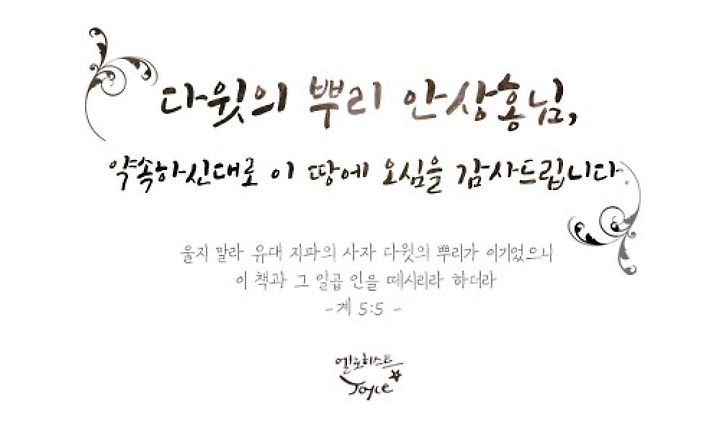 다윗의 뿌리 안상홍님,
약속하신대로 이 땅에 오심을 감사드립니다.
울지 말라 유대 지파의 사자 다윗의 뿌리가 이기었으니
이 책과 그 일곱 인을 떼시리라 하더라
- 계 5:5 -
엘로히스트
Joyce